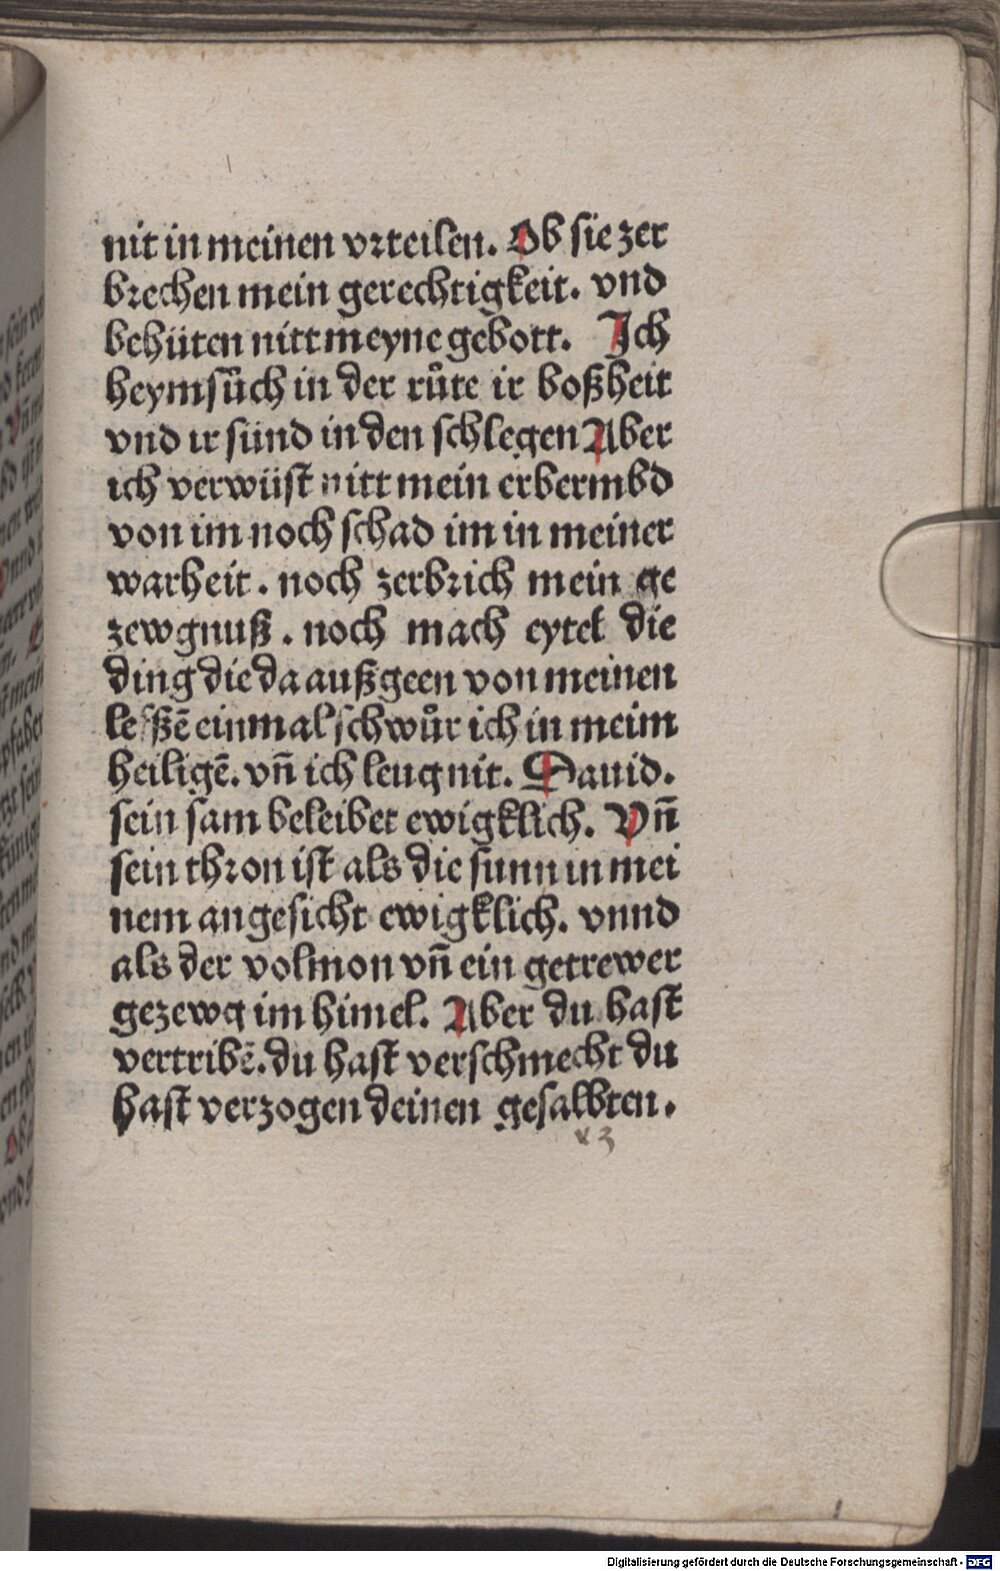 nit in meinen vrteilen. Ob sie zer
brechen mein gerechtigkeit. vnd
behüten nitt meyne gebott. Ich
heymsůch in der růte ir boßheit
vnd ir sünd in den schlegen Aber
ich verwüst nitt mein erbermbd
von im noch schad im in meiner
warheit. noch zerbrich mein ge
zewgnuß. noch mach eytel die
ding die da außgeen von meinen
lefßē einmal schwůr ich in meim
heiligē. vñ ich leug nit. Dauid.
sein sam beleibet ewigklich. Vñ
sein thron ist als die sunn in mei
nem angesicht ewigklich. vnnd
als der volmon vñ ein getrewer
gezewg im himel. Aber du hast
vertribē. du hast verschmecht du
hast verzogen deinen gesalbten.
Digitalisierung gefördert durch die Deutsche Forschungsgemeinschaft - DFG